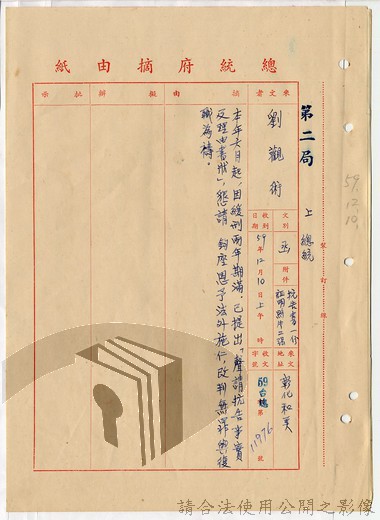 總統府摘由紙
第二局
上 總統
來文者
劉觀術
文別
函
附件
抗告書一份
證明影片二張
來文地址
彰化和美
收到日期
59年12月10日上午 時
收文字號
59台 第11976號
摘由
本年六月起,因緩刑兩年期滿,已提出「聲請抗告事實
及理由書狀」,懇請 鈞座恩予法外施仁,改判無罪與復
職為禱。
擬辦
批示
裝訂線
59.12.10.
請合法使用公開之影像